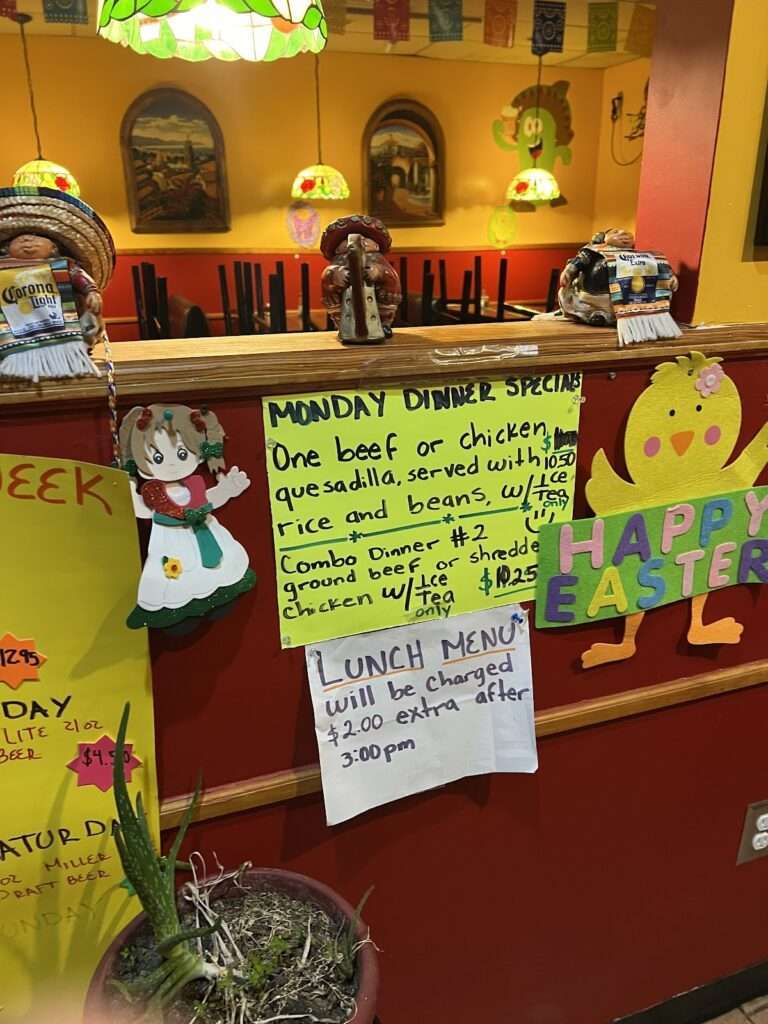 Corona
Light
MONDAY DINNER SPECIALS
One beef or chicken
quesadilla, served with 10.50
rice and beans, w/ Ice
Tea
only
Combo Dinner #2
ground beef or shredde
chicken w/ Ice $10.25
Tea
only
LUNCH MENU
will be charged
$2.00 extra after
3:00pm
HAPPY
EASTER
WEEK
1295
DAY
LITE 21oz
BEER
$4.50
ATURDA
oz MILLER
DRAFT BEER
UNDAY